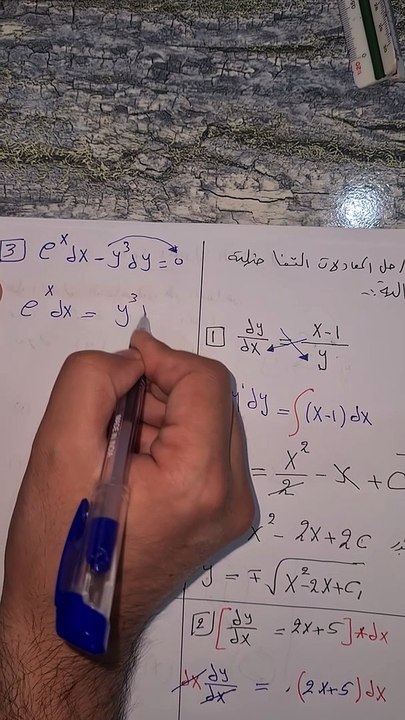 3 e^x dx - y^3 dy = 0
e^x dx = y^3
حل المعادلات التفا ضلية
1 dy/dx = x-1/y
y' dy = ∫(x-1)dx
= x^2/2 - x + C
x^2 - 2x + 2C
y = ∓√x^2-2x+C₁
2 [dy/dx = 2x+5]*dx
dx dy/dx = .(2x+5)dx